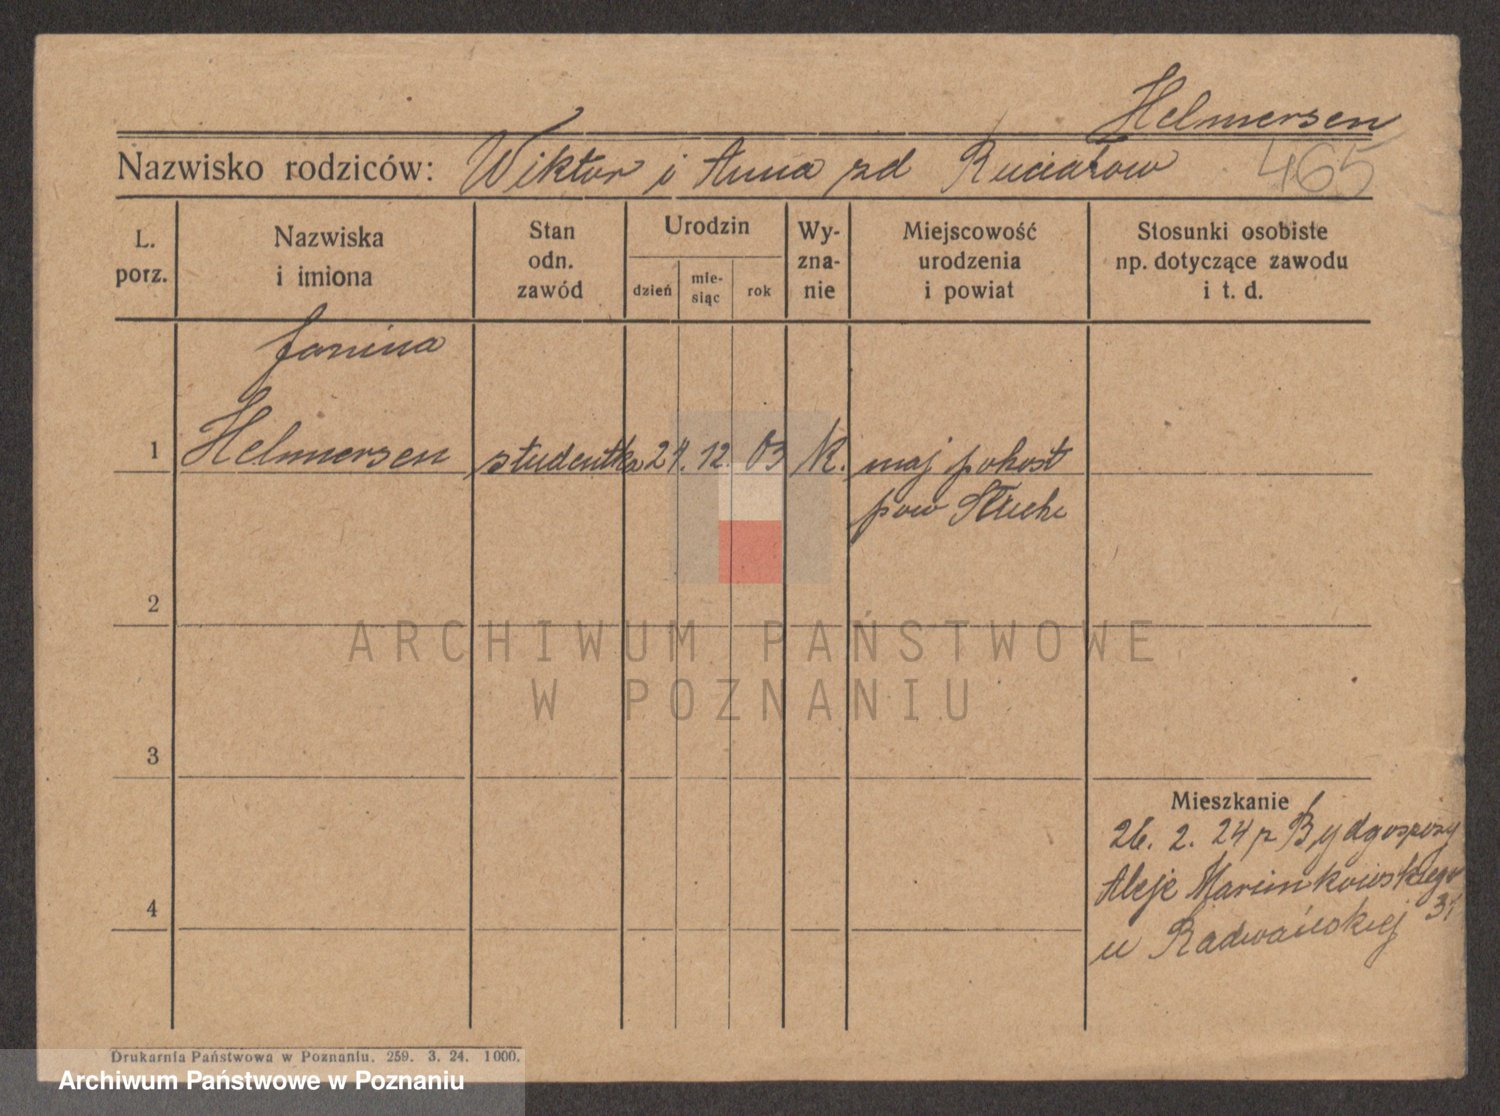 Helmersen
Nazwisko rodziców: Wiktor i Anna zd Ruciatow 465
L. porz.
Nazwiska i imiona
Stan odn. zawód
Urodzin
dzień
mie-siąc
rok
Wy-zna-nie
Miejscowość urodzenia i powiat
Stosunki osobiste np. dotyczące zawodu i t. d.
Janina
1 Helmersen studentka 24. 12. 03 K. maj pohost
pow Słuck
2
ARCHIWUM PAŃSTWOWE
W POZNANIU
3
Mieszkanie
26. 2. 24 z Bydgoszczy
4 Aleje Marcinkowskiego
u Radwańskiej
Drukarnia Państwowa w Poznaniu. 259. 3. 24. 1000.
Archiwum Państwowe w Poznaniu